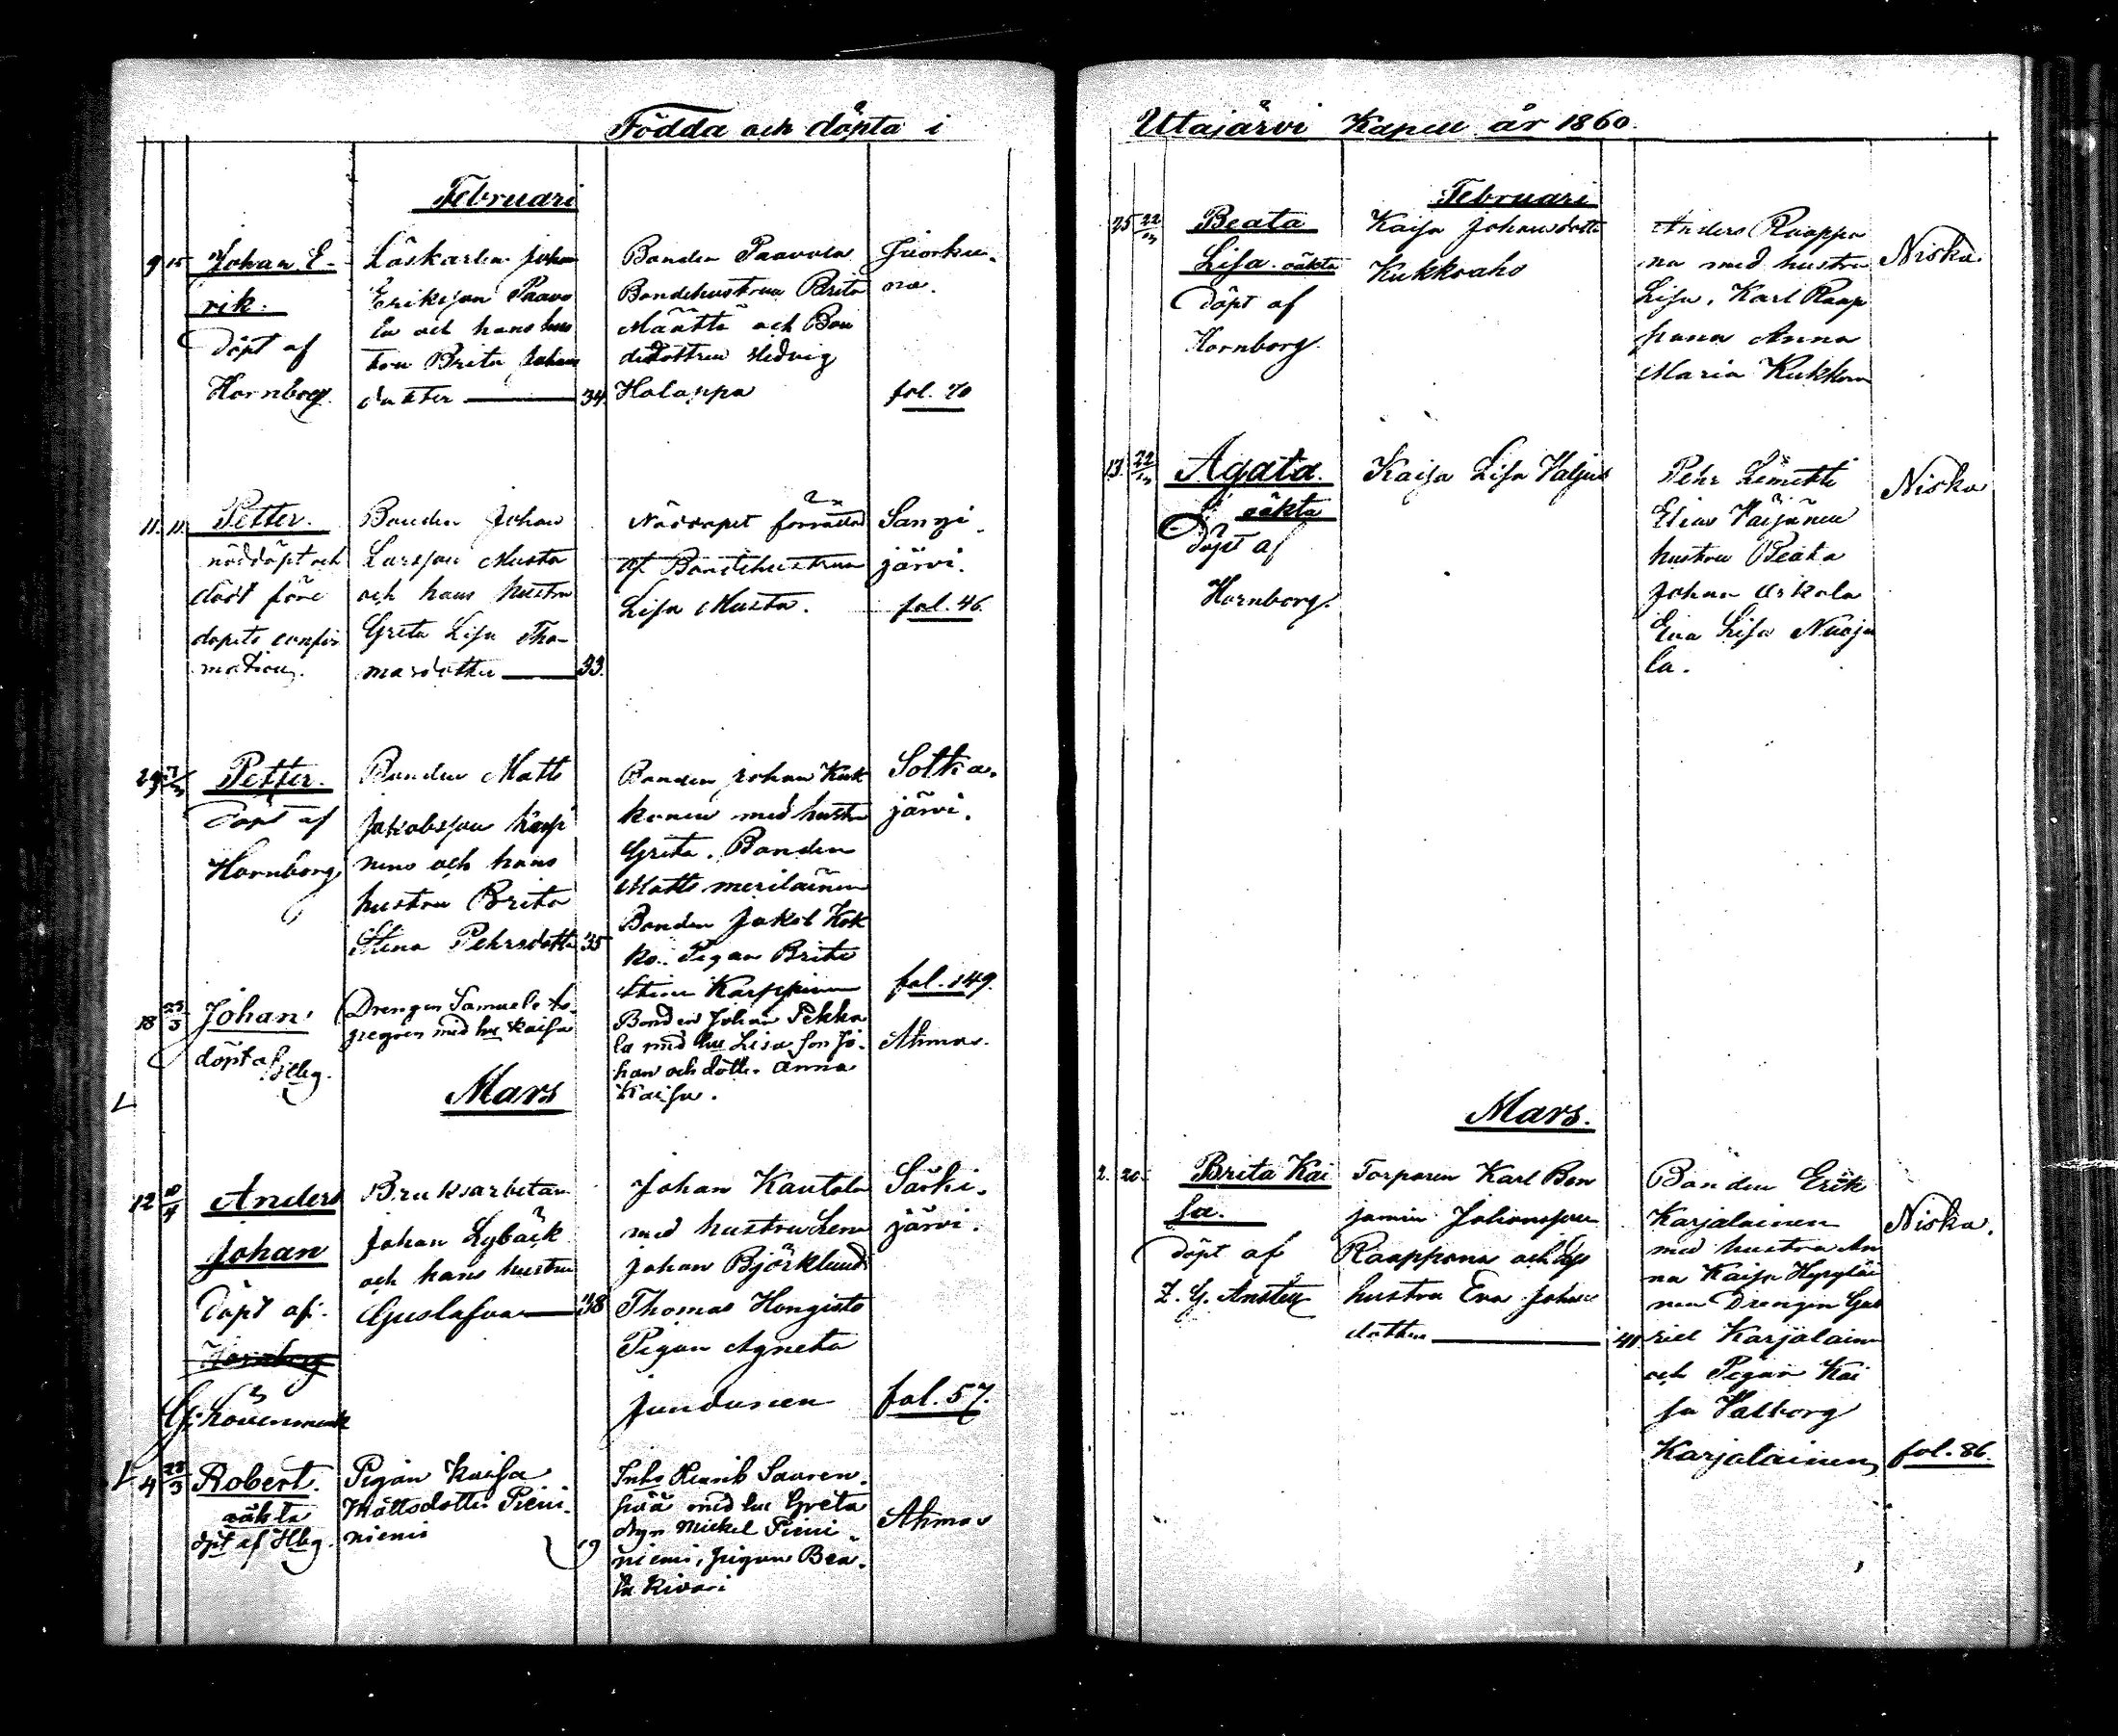 Födda och döpta i
Februari
9 15 Johan E-
rik.
döpt af
Hornborg.
Löskarlen Johan
Eriksson Paavo
la och hans hus
tru Brita Johans
dotter 34.
Bonden Paavola
Bondehustrun Brita
Määttä och Bon
dedottren Hedvig
Holappa
Juorku-
na.
fol. 70
11. 11. Petter.
nöddöpt och
död före
dopets confir
mation.
Bonden Johan
Larsson Musta
och hans hustru
Greta Lisa Tho-
masdotter 33.
Nöddopet förrättad
af Bondehustrun
Lisa Musta.
Sangi-
järvi.
fol. 46.
29 Petter.
döpt af
Hornborg
Bonden Matts
Jakobsson
nens och hans
hustru Brita
Stina Pehrsdotter 35
Bonden Johan Kuk
konen med hustru
Greta. Bonden
Matts meriläinen
Bonden Jakob Kok
ko. Pigan Brita
Stina Karppinen
Sotka-
järvi.
fol. 149.
18 25/3 Johan
döpt af Hbg.
Drengen Samuel
med hu Kaisa
Bonden Johan Pekka
la med hu Lisa, son Jo-
han och dotter Anna
Kaisa.
Ahmas.
Mars
12 Anders
Johan
döpt af:
Hornborg
Löuenmark
Bruksarbetaren
Johan Lybäck
och hans hustru
Gustafva 38
Johan Kautola
med hustru Lena
Johan Björklund
Thomas Hongisto
Pigan Agneta
Jundunen
Särki-
järvi.
fol. 57.
4 25/3 Robert.
oäkta
dpt af Hbg.
Pigan Kaisa
Mattsdotter Pieni-
niemi 19
Inhs Henrik Sauren-
pää med hu Greta
drgn Mickel Pieni-
niemi, pigan Bea-
ta Kivari
Ahmas
Utajärvi Kapell år 1860.
Februari
25 Beata
Lisa. oäkta
döpt af
Hornborg.
Kaisa Johansdotter
Kukkoaho
Anders Raappa
na med hustru
Lisa, Karl Raap
pana Anna
Maria Kukkonen
Niska.
13. Agata.
oäkta
döpt af
Hornborg.
Kaisa Lisa Valjus
Pehr Lämetti
Elias Väijänen
hustru Beata
Johan Arkala
Eva Lisa Nuoju
la.
Niska
Mars.
2. 20. Brita Kai
sa.
döpt af
Z. G. Ansten
Torparen Karl Ben
jamin Johansson
Raappana och
hustru Eva Johans
dotter 40.
Bonden Erik
Karjalainen
med hustru An
na Kaisa Hyryläi
nen Drengen Gab
riel Karjalainen
och Pigan Kai
sa Valborg
Karjalainen
Niska.
fol. 86.